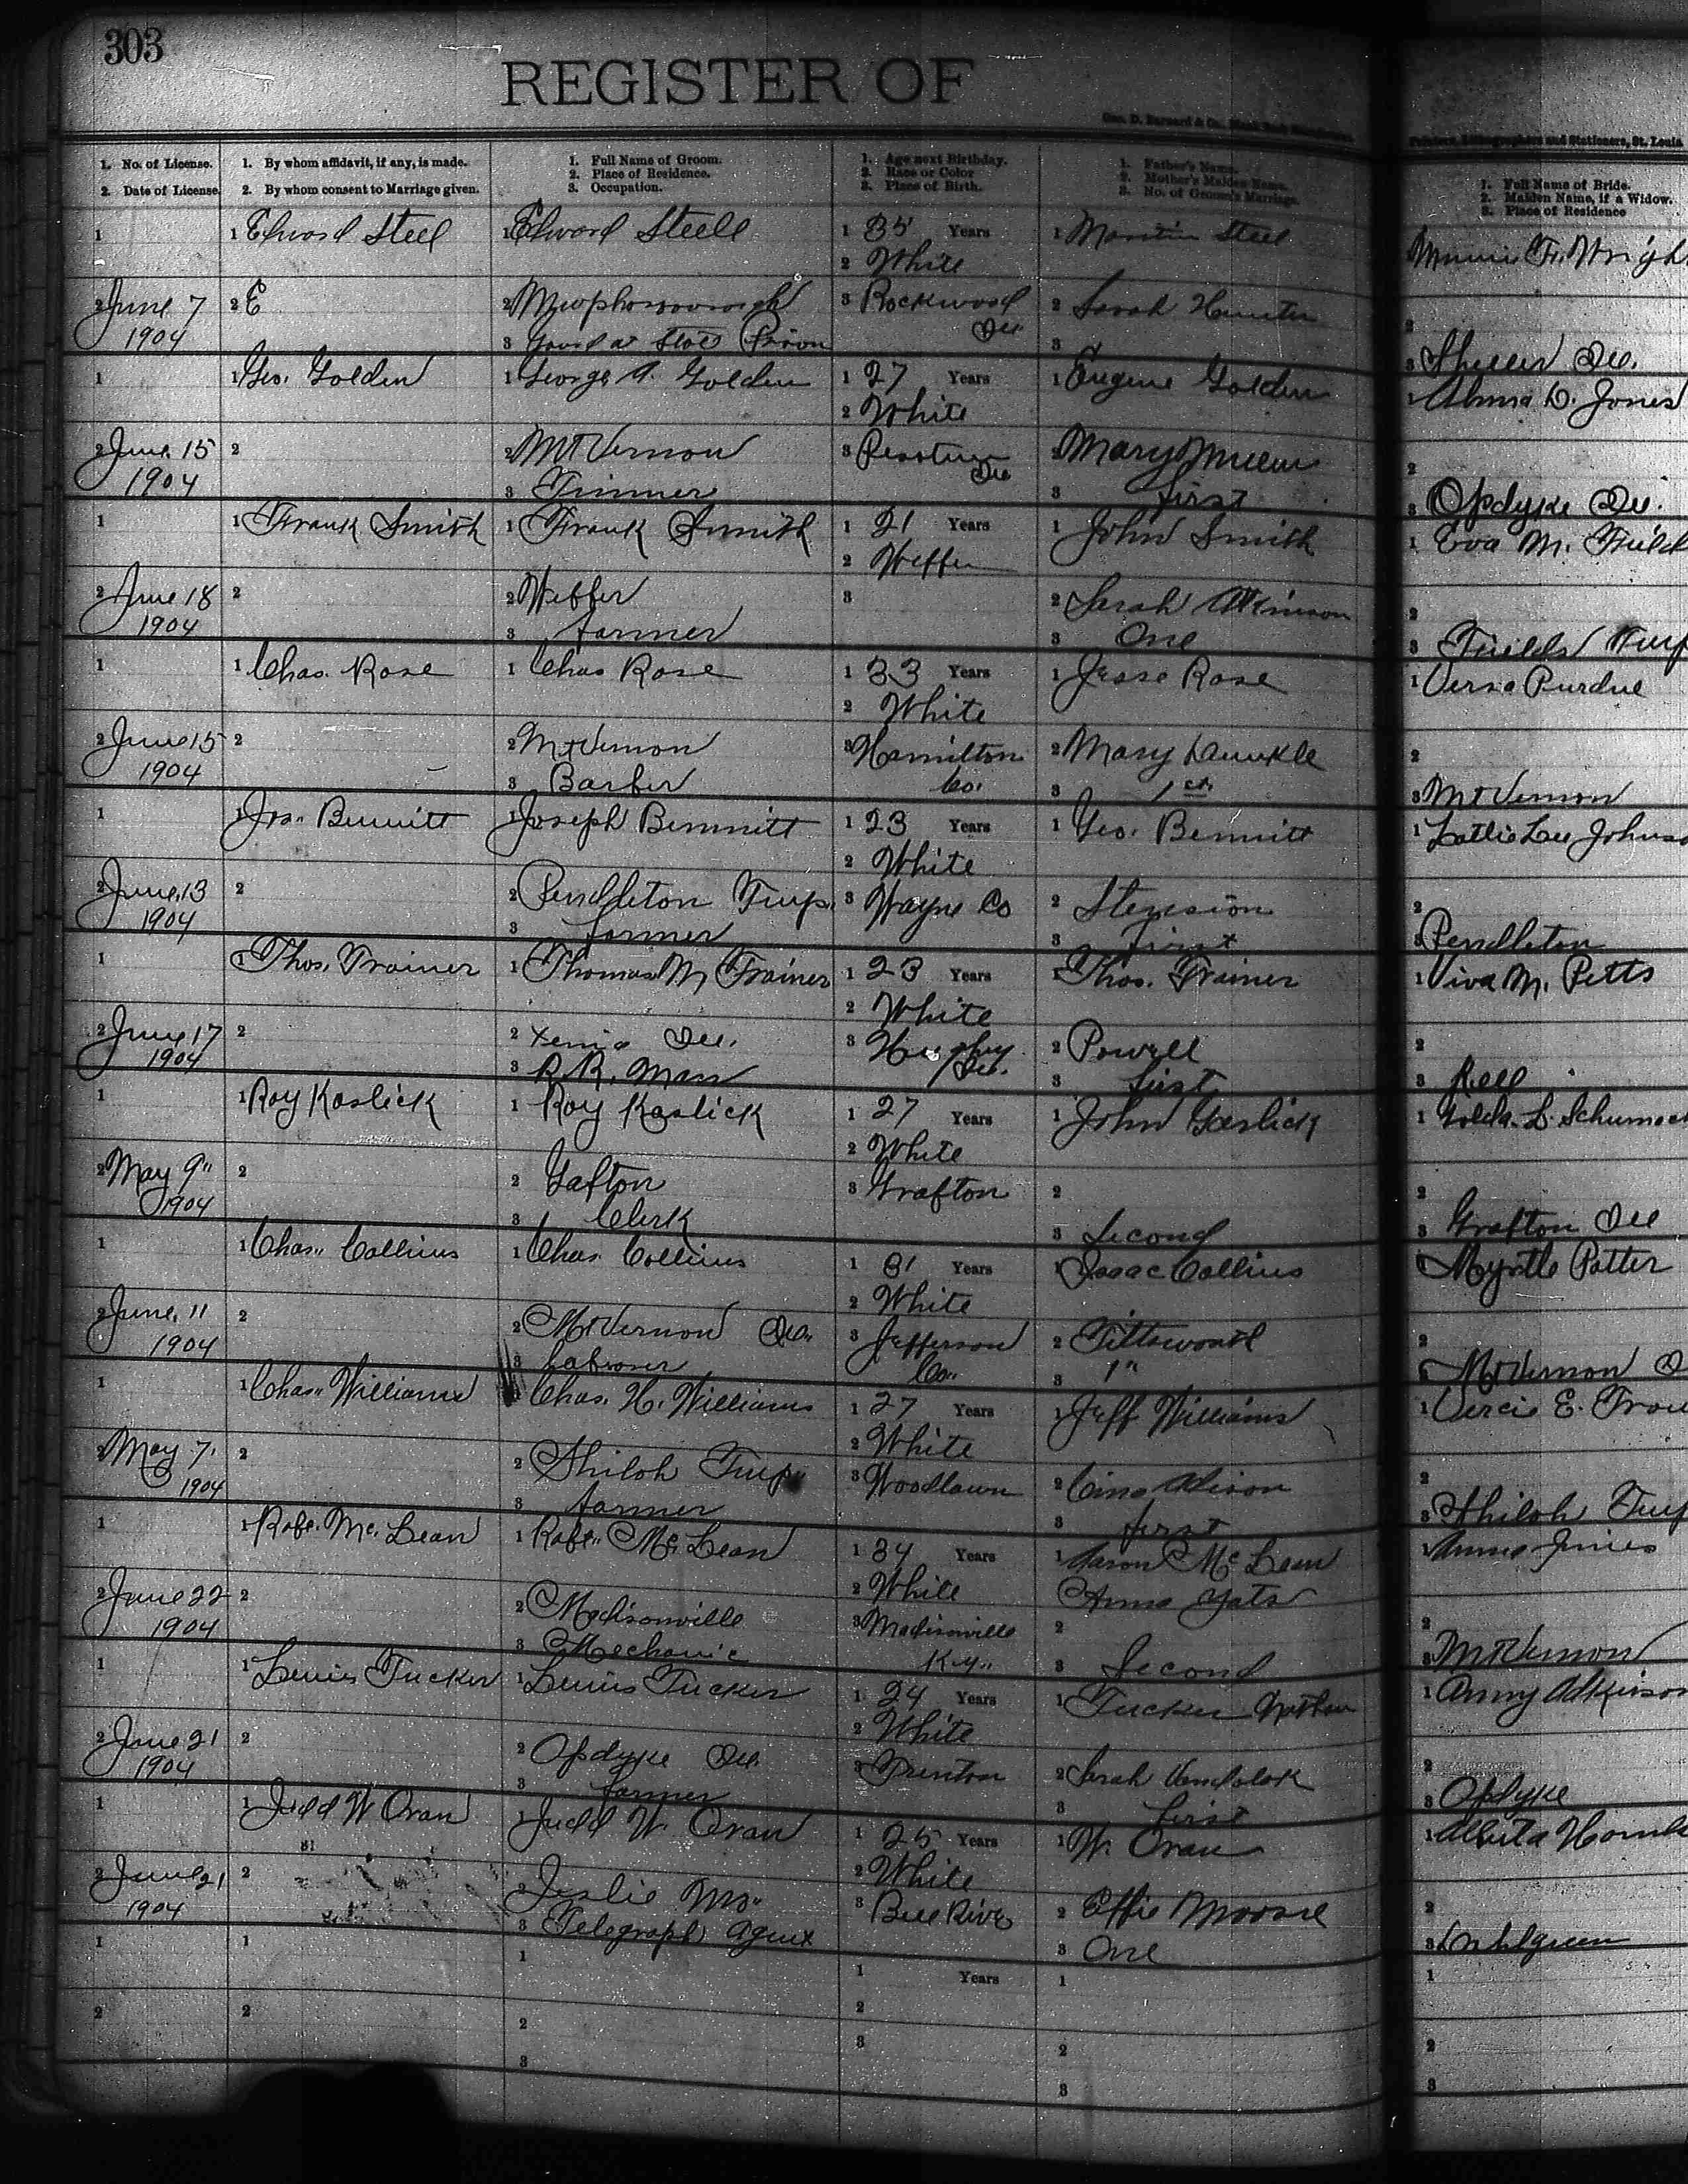 303
REGISTER OF
Geo. D. Barnard & Co.
Printers, Lithographers and Stationers, St. Louis
1. No. of License.
2. Date of License.
1. By whom affidavit, if any, is made.
2. By whom consent to Marriage given.
1. Full Name of Groom.
2. Place of Residence.
3. Occupation.
1. Age next Birthday.
2. Race or Color
3. Place of Birth.
1. Father's Name.
2. Mother's Maiden Name.
3. No. of Groom's Marriage.
1. Full Name of Bride.
2. Maiden Name, if a Widow.
3. Place of Residence
1 1 Edward Steel 1 Edward Steele 1 35 Years 1 Martin Steel Minnie F. Wrigh
2 White
2 June 7 2 E 2 Murphysborough 3 Rockwood 2 Sarah Hunter 2
1904 3 Guard at State Prison Ill 3 3 Sheller Ill.
1 1 Geo. Golden 1 George A. Golden 1 27 Years 1 Eugene Golden 1 Alma D. Jones
2 White
2 June 15 2 2 Mt Vernon 3 Ill 2 Mary 2
1904 3 3 first 3 Opdyke Ill.
1 1 Frank Smith 1 Frank Smith 1 21 Years 1 John Smith 1 Eva M. Field
2 Webber
2 June 18 2 2 Webber 3 2 Sarah Atkinson 2
1904 3 farmer 3 One 3 Fields Twp
1 1 Chas. Rose 1 Chas Rose 1 33 Years 1 Jesse Rose 1 Versa Purdue
2 White
2 June 15 2 2 Mt Vernon 3 Hamilton 2 Mary Dunkle 2
1904 3 Barber Co. 3 1st 3 Mt Vernon
1 1 Jos. Bennitt 1 Joseph Bennitt 1 23 Years 1 Geo. Bennitt 1 Lottie Lee Johnso
2 White
2 June 13 2 2 Pendleton Twp. 3 Wayne Co 2 Stension 2
1904 3 farmer 3 First 3 Pendleton
1 1 Thos. Trainer 1 Thomas M Trainer 1 23 Years 1 Thos. Trainer 1 Viva M. Petts
2 White
2 June 17 2 2 Xenia Ill. 3 Hughey Ill. 2 Powell 2
1904 3 R.R. Man 3 first 3 Kell
1 1 Roy Kaslick 1 Roy Kaslick 1 27 Years 1 John Gaslick 1 Golda. L. Schumach
2 White
2 May 9" 2 2 Gafton 3 Grafton 2 2
1904 3 Clerk 3 Second 3 Grafton Ill
1 1 Chas. Collins 1 Chas. Collins 1 31 Years 1 Isaac Collins 1 Myrtle Patter
2 White
2 June. 11 2 2 Mt Vernon Ill. 3 Jefferson 2 Tittsworth 2
1904 3 Laborer Co. 3 1" 3 Mt Vernon I
1 1 Chas. Williams 1 Chas. H. Williams 1 27 Years 1 Jeff Williams 1 Vercie E. Trou
2 White
2 May 7. 2 2 Shiloh Twp 3 Woodlawn 2 2
1904 3 farmer 3 first 3 Shiloh Twp
1 1 Robt. Mc. Lean 1 Robt. Mc. Lean 1 34 Years 1 Aaron Mc Lean 1 Anna
2 White Anna Yats
2 June 22 2 2 Madisonville 3 Madisonville 2 2
1904 3 Mechanic Ky. 3 Second 3 Mt Vernon
1 1 Lewis Tucker 1 Lewis Tucker 1 24 Years 1 Tucker Nathan 1 Anny Adkinson
2 White
2 June 21 2 2 Opdyke Ill. 3 Trenton 2 Sarah 2
1904 3 farmer 3 first 3 Opdyke
1 1 Judd W Oran 1 Judd W. Oran 1 25 Years 1 W. Oran 1
2 White
2 June 21 2 2 Leslie Mo. 3 2 Effie Moore 2
1904 3 Telegraph Agent 3 One 3 Dahlgreen
1 1 1 1 Years 1 1
2
2 2 2 3 2 2
3 3 3